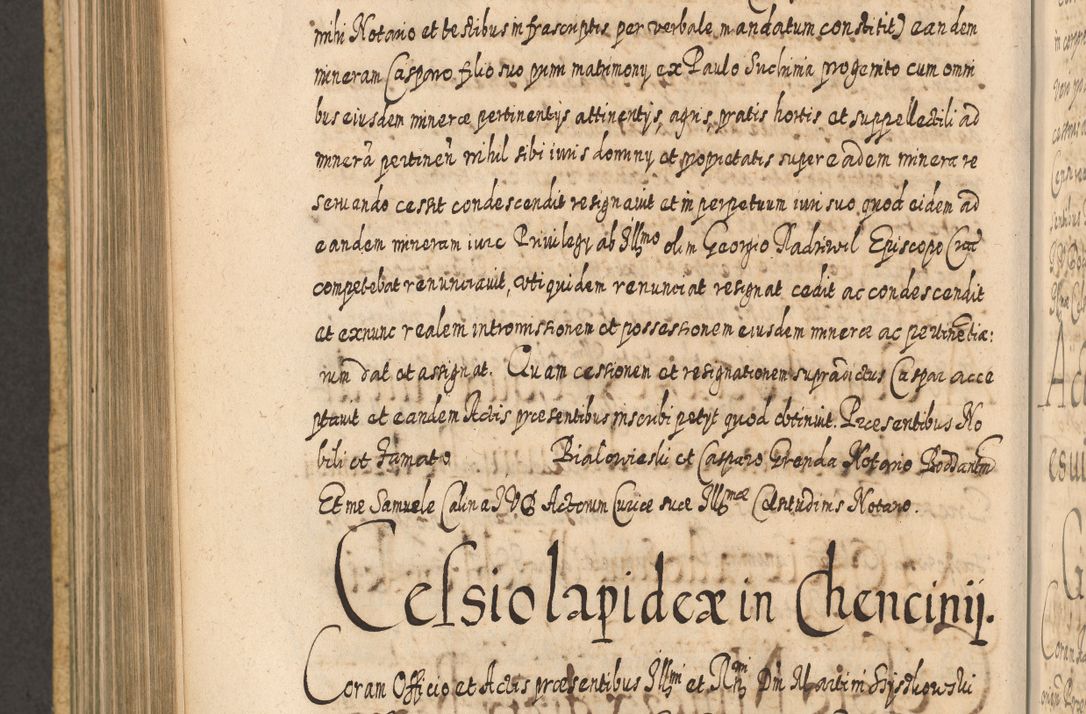 mihi Notario et testibus infrascriptis per verbale mandatum constitit) eandem
mineram Casparo filio suo primi matrimony ex Paulo Suchinia progenito cum omni
bus eiusdem mineræ pertinentijs attinentijs, agris, pratis hortis et suppellectili ad
minerā pertineñ nihil sibi iuris dominy et proprietatis super eadem minera re
seruando cessit condescendit resignauit et in perpetuum iuri suo, quod eidem ad
eandem mineram iure Priuilegy ab Illmo olim Georgio Radziwil Episcopo Crac̄
competebat renunciauit, uti quidem renunciat resignat cedit ac condescendit
et exnunc realem intromissionem et possessionem eiusdem mineræ ac pertinētia:
rum dat et assignat. Quam cessionem et resignationem suprādictus Caspar acce
ptauit et eandem Actis præsentibus inscribi petyt quod obtinuit. Præsentibus No
bili et famato Bialowieski et Casparo Grenda Notario
Et me Samuele Calina I V D Actorum Curiæ suæ Illmæ Celsitudinis Notario.
Cessio lapideæ in Chencinij.
Coram Officio et Actis præsentibus Illmi et Rmi Dn̄i Martini Szyszkowski